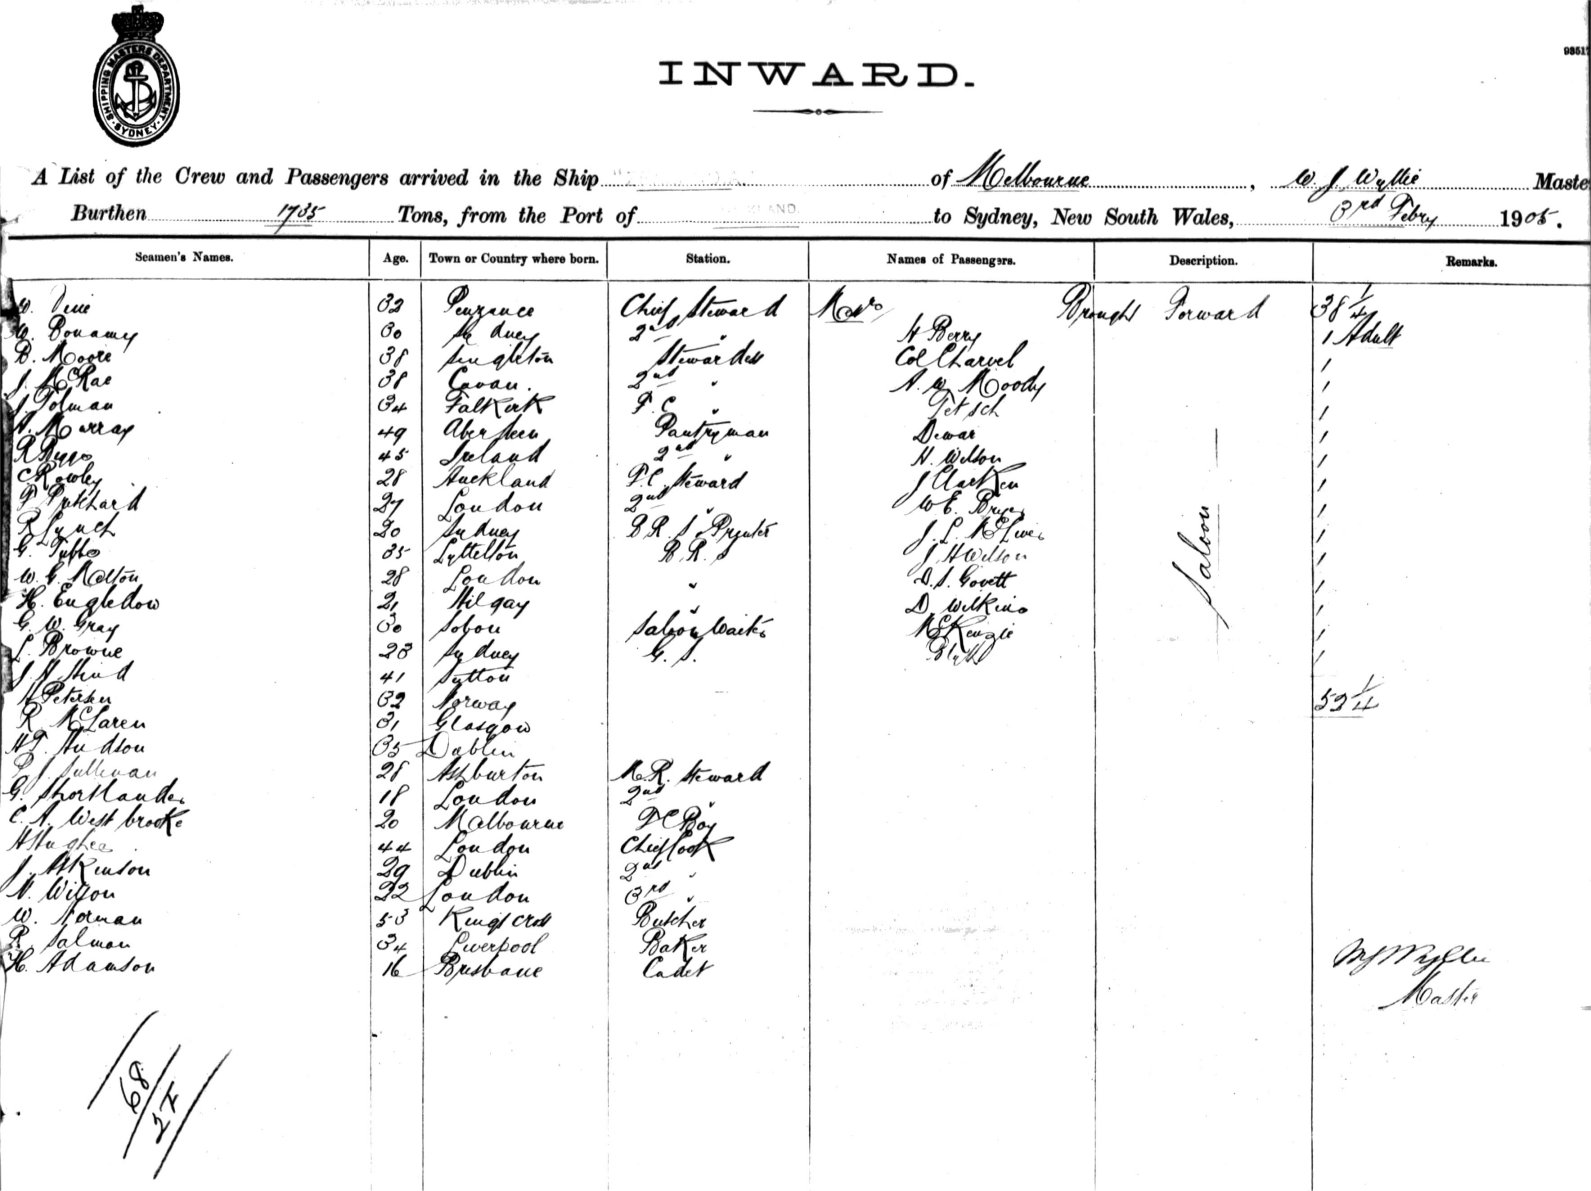 SHIPPING MASTERS DEPARTMENT. SYDNEY.
93517
INWARD.
A List of the Crew and Passengers arrived in the Ship of Melbourne, W. J. Wyllie Maste
Burthen 1735 Tons, from the Port of to Sydney, New South Wales, 3rd Febry 1905.
Seamen's Names. Age. Town or Country where born. Station. Names of Passengers. Description. Remarks.
32 Penzance Chief Steward Messrs Brought Forward 38 1/4
W. Bonamy 30 Sydney 2nd " H Berry 1 Adult
B. Moore 38 Singleton Stewardess Col Charvel 1
J. McRae 38 Cavan. 2nd " A. W. Moody 1
J. Tolman 34 Falkirk F. C " Petsch 1
A. Murray 49 Aberdeen Pantryman Dewar 1
45 Ireland 2nd " H. Wilson 1
C Rowley 28 Auckland F.C. Steward J Clarken 1
F Pritchard 27 London 2nd " W E. 1
R Lynch 20 Sydney B.R. S & Printer J. L. 1
G. Tubbs 35 Lyttelton B. R. S J H Wilson 1
W. G. Melton 28 London " D. S. Govett 1
H. Engledow 21 Hilgay " D Wilkins 1
G. W. Gray 30 Saloon Waiter McKenzie 1
L. Browne 23 Sydney G. S. 1
J H Hind 41 Sutton
H Petersen 32 Norway 52 1/4
R McLaren 31 Glasgow
H T. Hudson 35 Dublin
P J. Sullivan 28 Ashburton M. R. Steward
G. Shortlander 18 London 2nd "
C. A. Westbrooke 20 Melbourne F C Boy
H Hughes 44 London Chief Cook
J. Atkinson 29 Dublin 2nd "
N. Wilson 22 London 3rd "
W. Norman 53 Kings Cross Butcher
R. Salmon 34 Liverpool Baker
H. Adamson 16 Brisbane Cadet
Saloon
W J Wyllie
Master
68
27